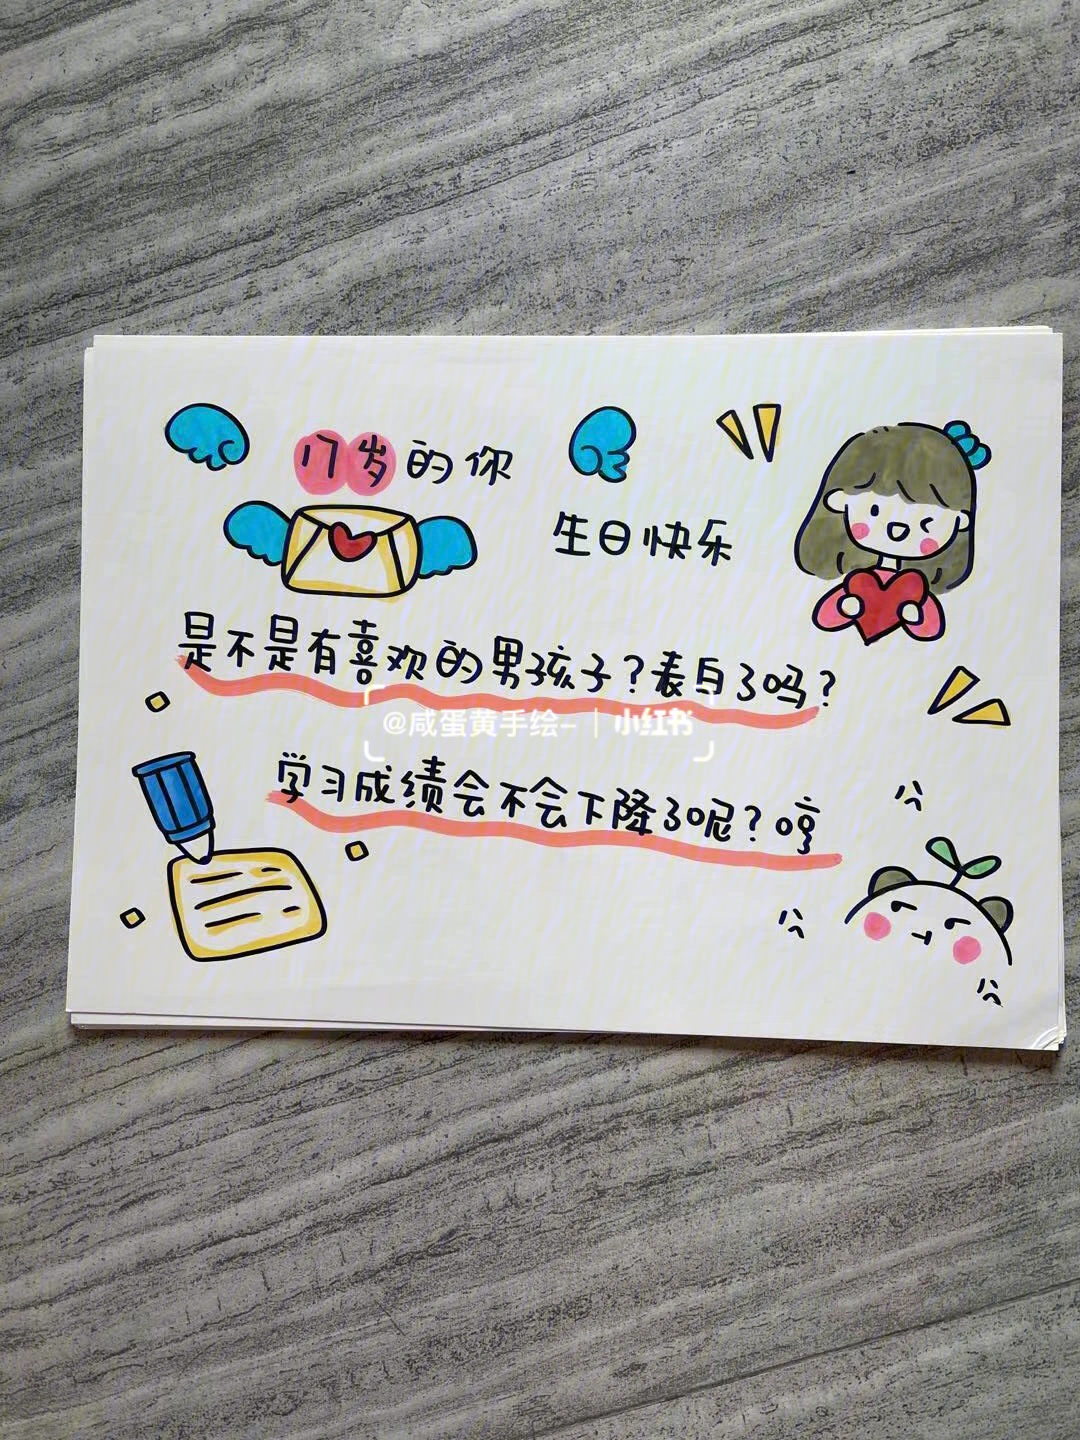 17岁的你
生日快乐
是不是有喜欢的男孩子？表白了吗？
@咸蛋黄手绘- | 小红书
学习成绩会不会下降了呢？哼